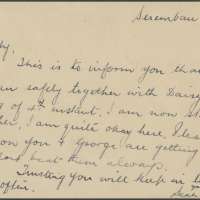 Seremban
by.
This is to inform you tha
safely together with Daisy
g of 4th instant. I am now st
her, I am quite okay here. I lea
on you & George are getting
beat them always.
Trusting you will keep in
often.